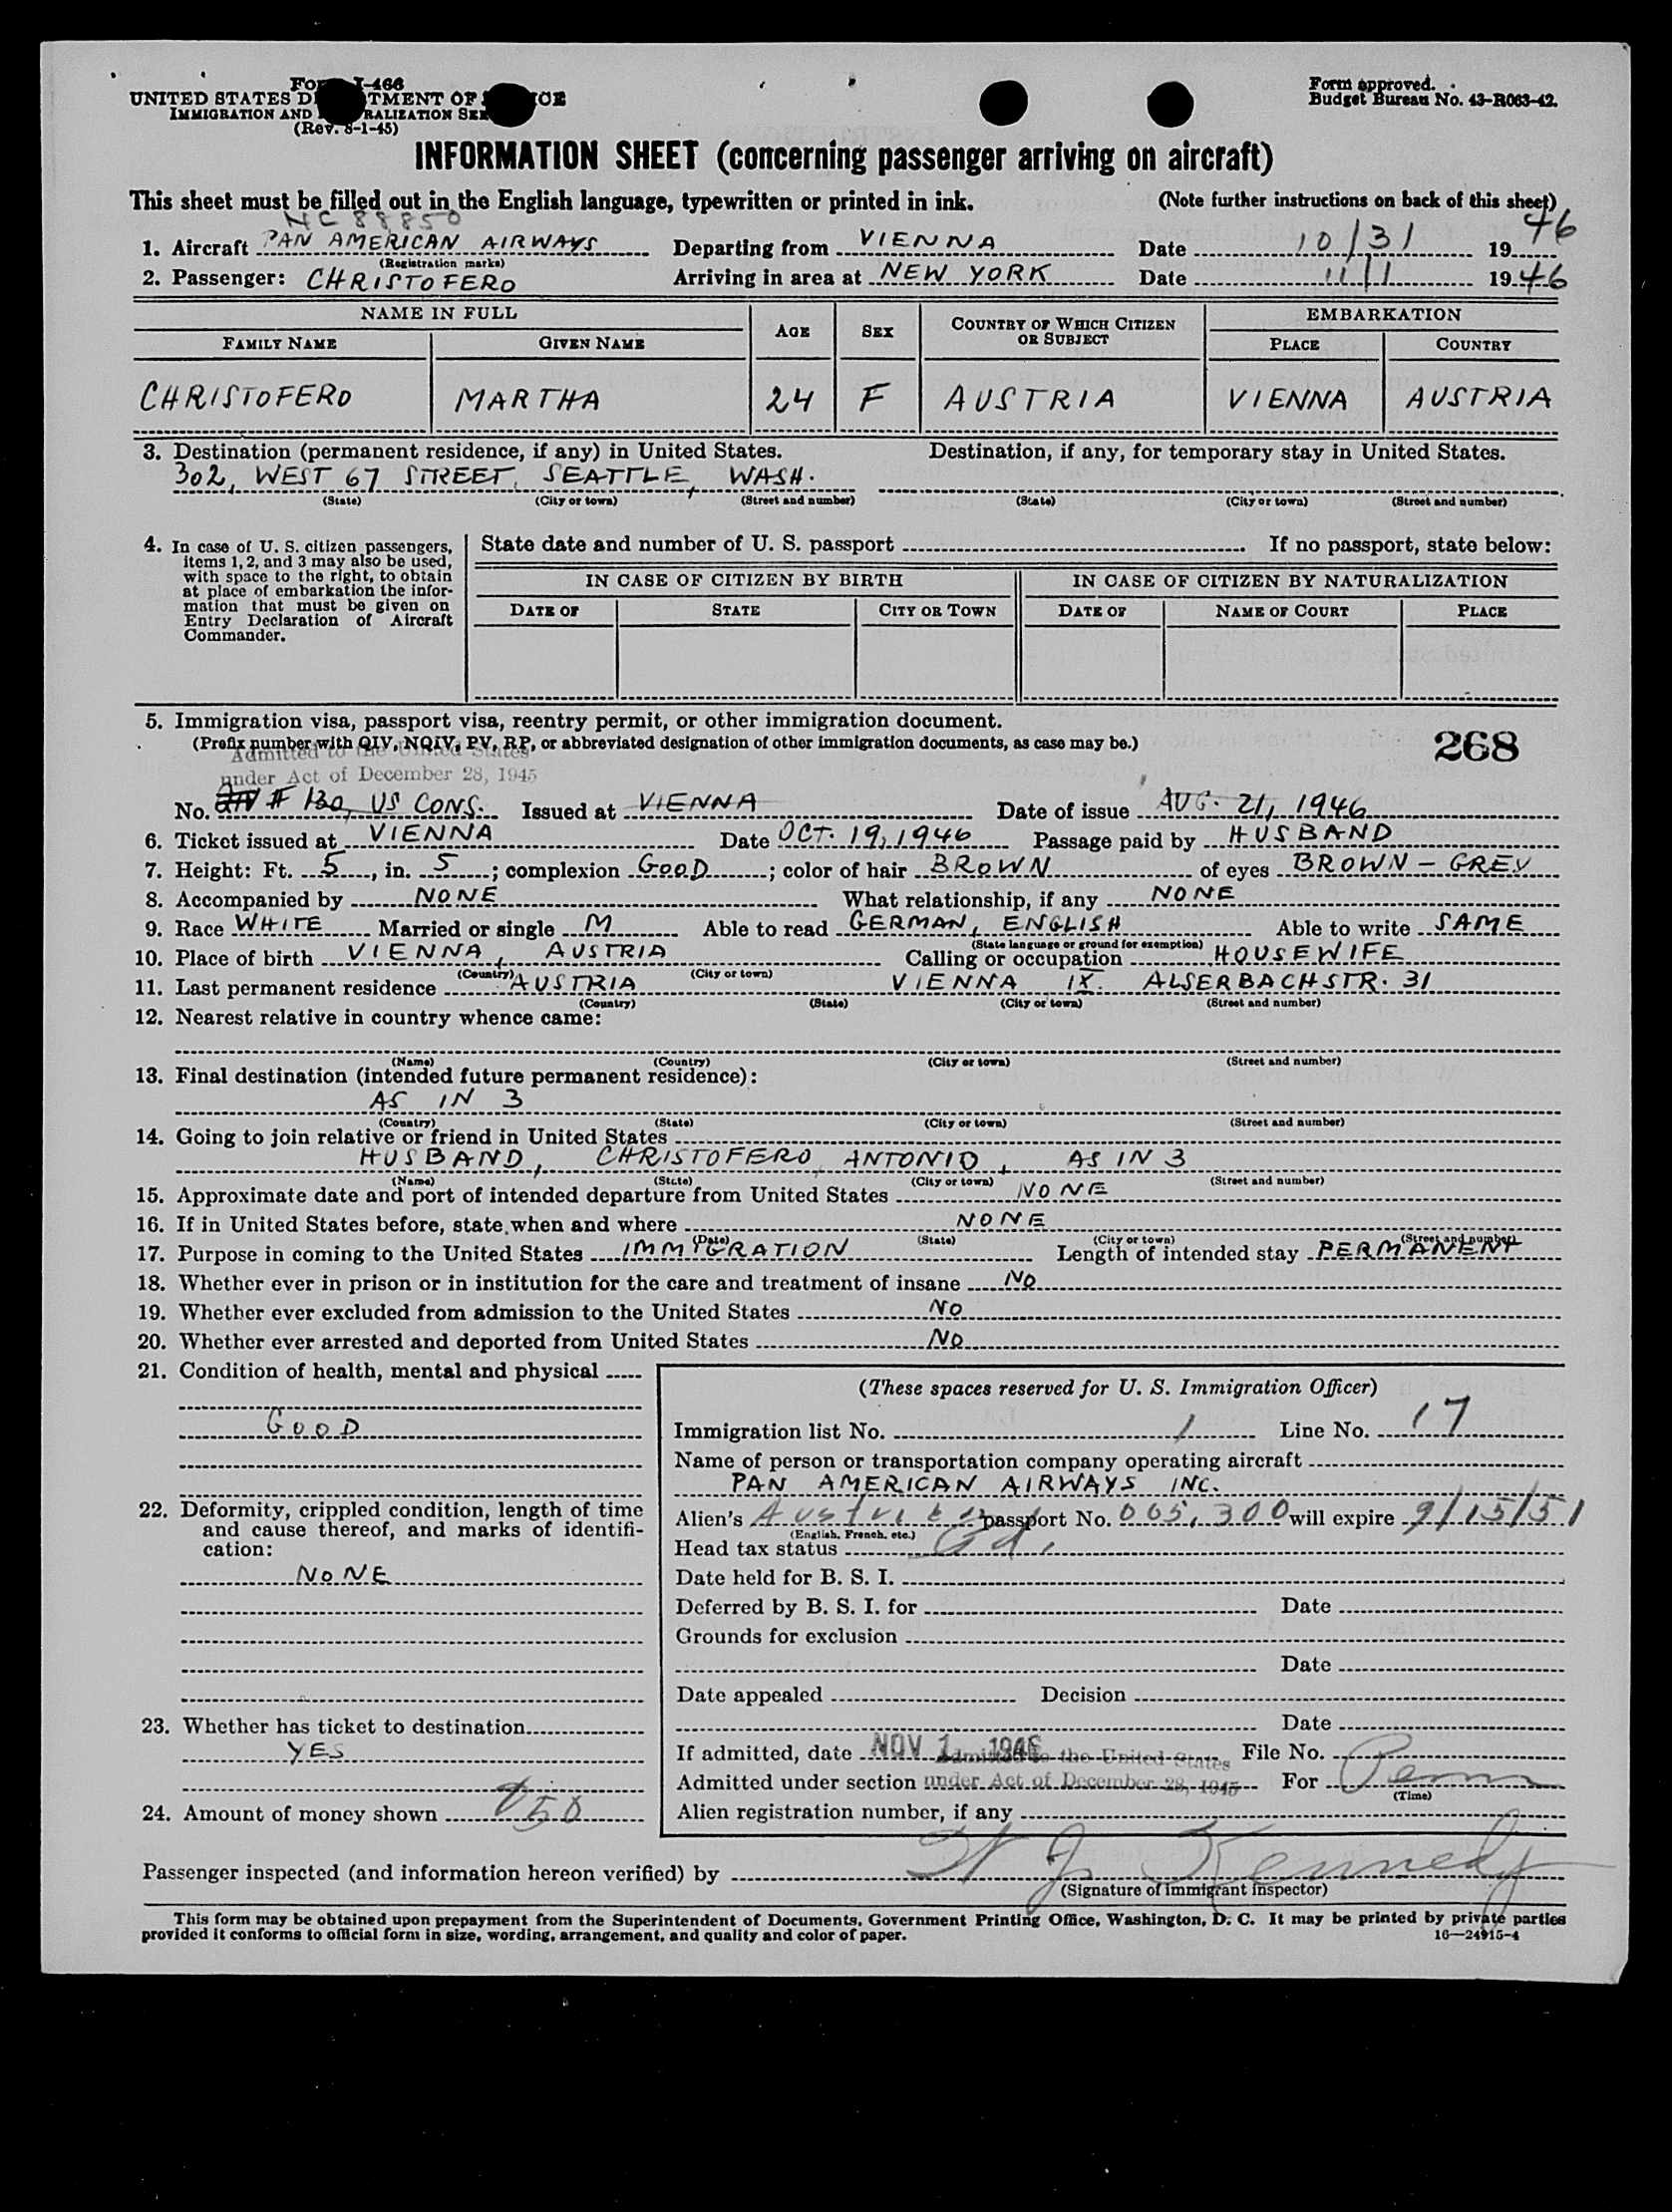 Form I-466
UNITED STATES DEPARTMENT OF JUSTICE
IMMIGRATION AND NATURALIZATION SERVICE
(Rev. 8-1-45)
Form approved.
Budget Bureau No. 43-R063-42.
INFORMATION SHEET (concerning passenger arriving on aircraft)
This sheet must be filled out in the English language, typewritten or printed in ink. (Note further instructions on back of this sheet)
NC 88850
1. Aircraft PAN AMERICAN AIRWAYS Departing from VIENNA Date 10/31 1946
(Registration marks)
2. Passenger: CHRISTOFERO Arriving in area at NEW YORK Date 11/1 1946
NAME IN FULL AGE SEX COUNTRY OF WHICH CITIZEN OR SUBJECT EMBARKATION
FAMILY NAME GIVEN NAME PLACE COUNTRY
CHRISTOFERO MARTHA 24 F AUSTRIA VIENNA AUSTRIA
3. Destination (permanent residence, if any) in United States. Destination, if any, for temporary stay in United States.
302, WEST 67 STREET, SEATTLE, WASH.
(State) (City or town) (Street and number) (State) (City or town) (Street and number)
4. In case of U. S. citizen passengers,
items 1, 2, and 3 may also be used,
with space to the right, to obtain
at place of embarkation the infor-
mation that must be given on
Entry Declaration of Aircraft
Commander.
State date and number of U. S. passport . If no passport, state below:
IN CASE OF CITIZEN BY BIRTH IN CASE OF CITIZEN BY NATURALIZATION
DATE OF STATE CITY OR TOWN DATE OF NAME OF COURT PLACE
5. Immigration visa, passport visa, reentry permit, or other immigration document.
(Prefix number with QIV, NQIV, PV, RP, or abbreviated designation of other immigration documents, as case may be.)
268
Admitted to the United States
under Act of December 28, 1945
No. # 130, US CONS. Issued at VIENNA Date of issue AUG. 21, 1946
6. Ticket issued at VIENNA Date OCT. 19, 1946 Passage paid by HUSBAND
7. Height: Ft. 5, in. 5; complexion GOOD; color of hair BROWN of eyes BROWN - GREY
8. Accompanied by NONE What relationship, if any NONE
9. Race WHITE Married or single M Able to read GERMAN, ENGLISH Able to write SAME
(State language or ground for exemption)
10. Place of birth VIENNA, AUSTRIA Calling or occupation HOUSEWIFE
(Country) (City or town)
11. Last permanent residence AUSTRIA VIENNA IX. ALSERBACHSTR. 31
(Country) (State) (City or town) (Street and number)
12. Nearest relative in country whence came:
(Name) (Country) (City or town) (Street and number)
13. Final destination (intended future permanent residence):
AS IN 3
(Country) (State) (City or town) (Street and number)
14. Going to join relative or friend in United States
HUSBAND, CHRISTOFERO, ANTONIO, AS IN 3
(Name) (State) (City or town) (Street and number)
15. Approximate date and port of intended departure from United States NONE
16. If in United States before, state when and where NONE
(Date) (State) (City or town) (Street and number)
17. Purpose in coming to the United States IMMIGRATION Length of intended stay PERMANENT
18. Whether ever in prison or in institution for the care and treatment of insane NO
19. Whether ever excluded from admission to the United States NO
20. Whether ever arrested and deported from United States NO
21. Condition of health, mental and physical
GOOD
22. Deformity, crippled condition, length of time
and cause thereof, and marks of identifi-
cation:
NONE
23. Whether has ticket to destination
YES
24. Amount of money shown $50
(These spaces reserved for U. S. Immigration Officer)
Immigration list No. 1 Line No. 17
Name of person or transportation company operating aircraft
PAN AMERICAN AIRWAYS INC.
Alien's Austrian passport No. 065,300 will expire 9/15/51
(English, French, etc.)
Head tax status Pd.
Date held for B. S. I.
Deferred by B. S. I. for Date
Grounds for exclusion
Date
Date appealed Decision
Date
If admitted, date NOV 1 1946 Admitted to the United States File No.
Admitted under section under Act of December 28, 1945 For Perm
(Time)
Alien registration number, if any
Passenger inspected (and information hereon verified) by W J Kennedy
(Signature of immigrant inspector)
This form may be obtained upon prepayment from the Superintendent of Documents, Government Printing Office, Washington, D. C. It may be printed by private parties
provided it conforms to official form in size, wording, arrangement, and quality and color of paper.
16—24915-4